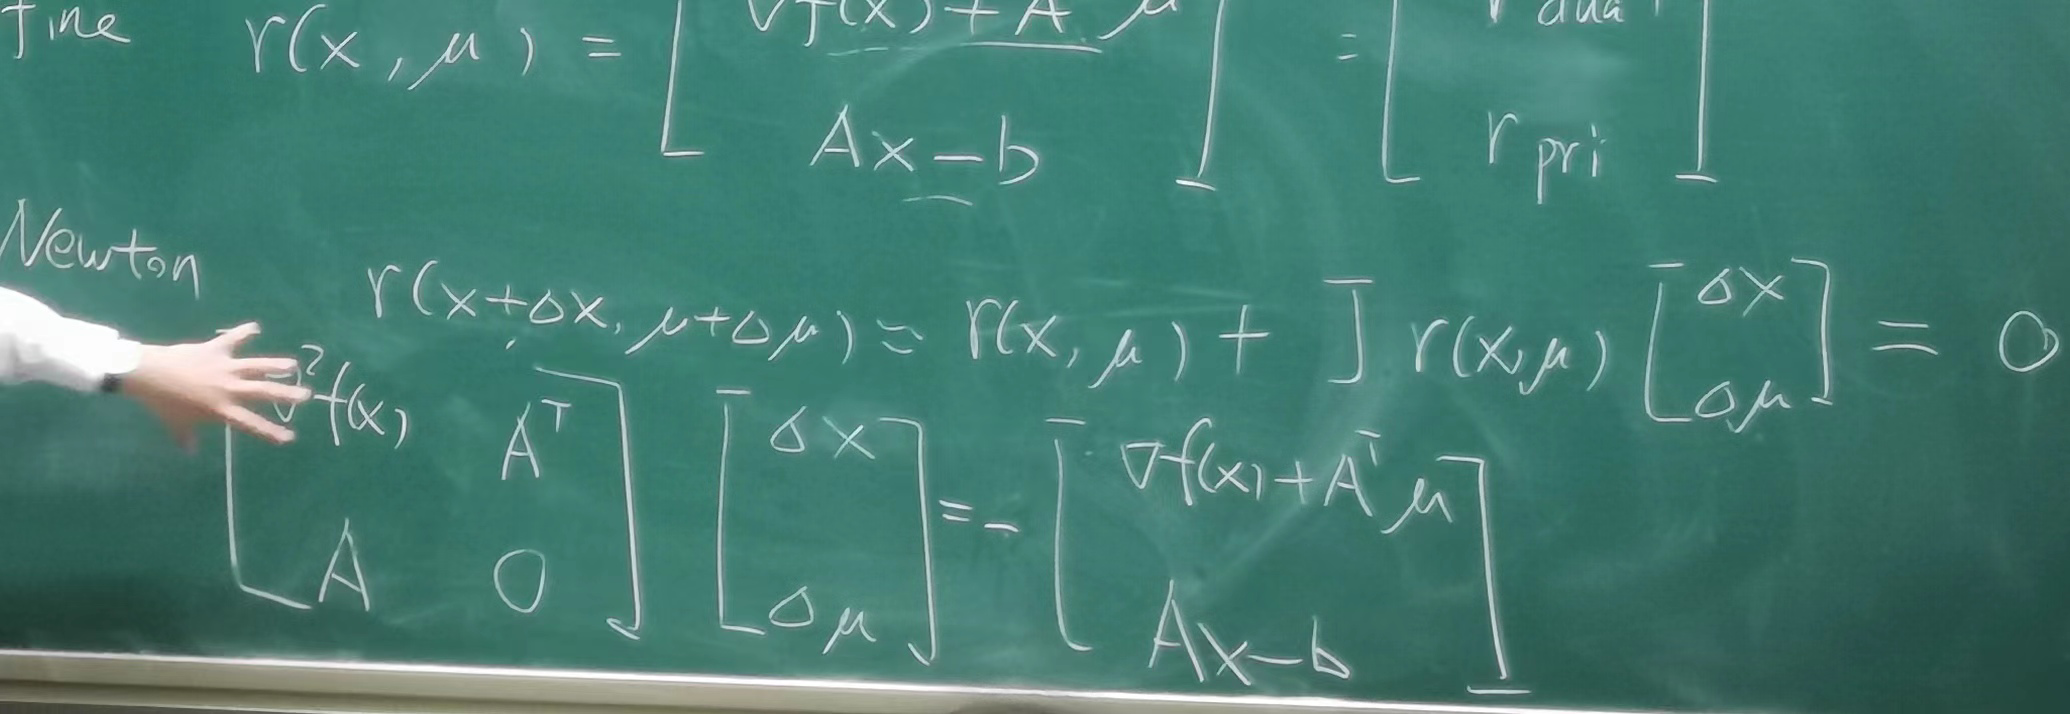 fine r(x, μ) = [ ∇f(x) + A μ ; Ax - b ] = [ r dual ; r pri ]
Newton
r(x+Δx, μ+Δμ) = r(x, μ) + J r(x, μ) [ Δx ; Δμ ] = 0
[ ∇²f(x) Aᵀ ; A 0 ] [ Δx ; Δμ ] = - [ ∇f(x) + Aᵀμ ; Ax - b ]